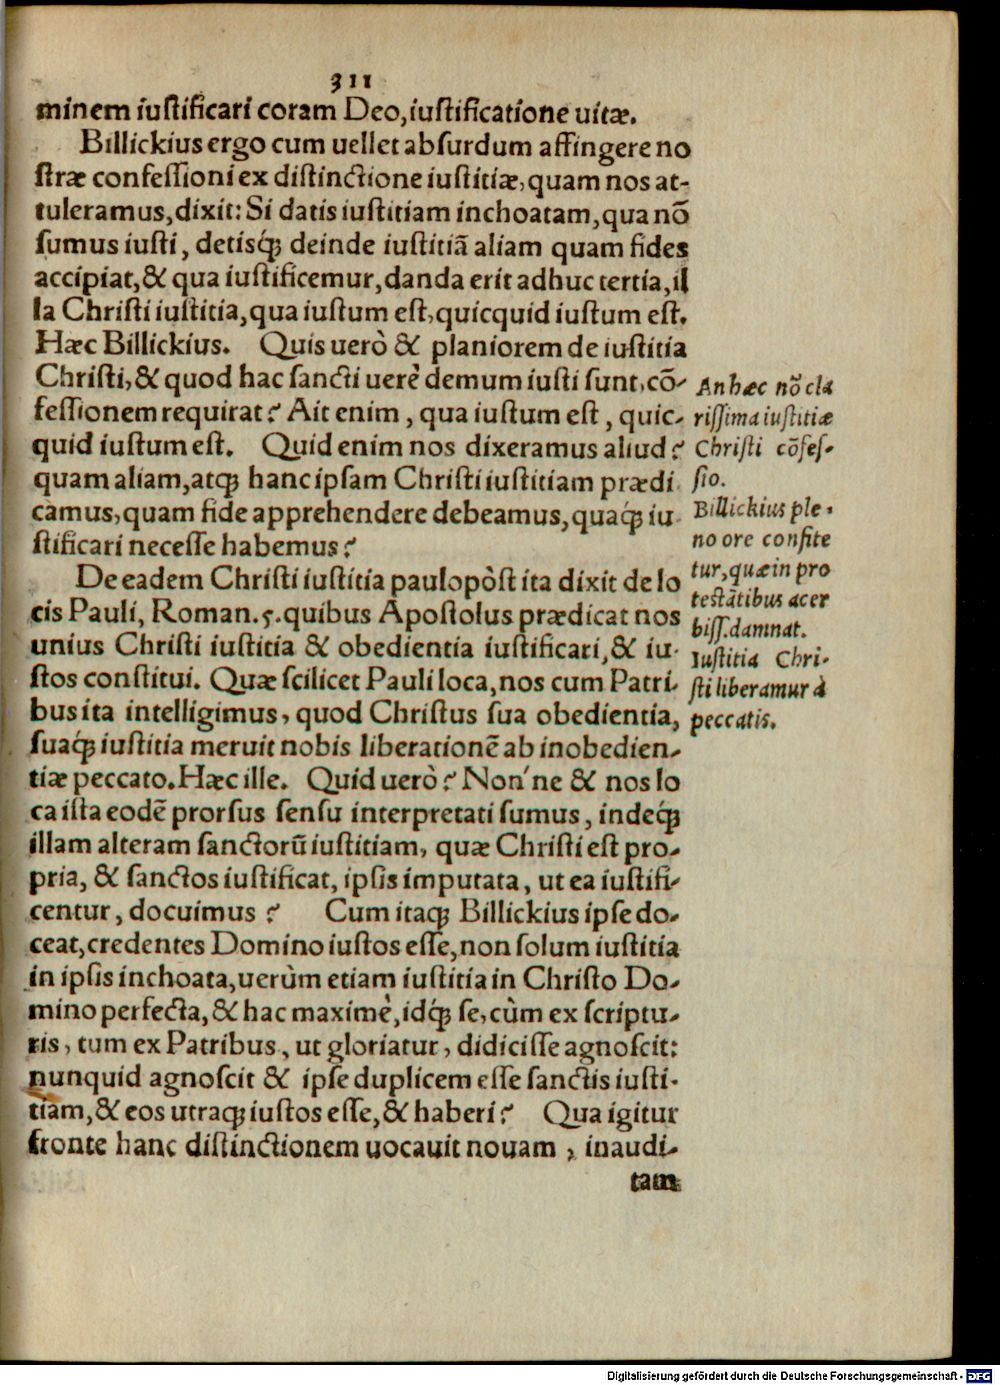 311
minem iuſtificari coram Deo, iuſtificatione uitæ.
Billickius ergo cum uellet abſurdum affingere no
ſtræ confeſſioni ex diſtinctione iuſtitiæ, quam nos at-
tuleramus, dixit: Si datis iuſtitiam inchoatam, qua nõ
ſumus iuſti, detisq́ꝫ deinde iuſtitiã aliam quam fides
accipiat, & qua iuſtificemur, danda erit adhuc tertia, il
la Chriſti iuſtitia, qua iuſtum eſt, quicquid iuſtum eſt.
Hæc Billickius. Quis uerò & planiorem de iuſtitia
Chriſti, & quod hac ſancti uerè demum iuſti ſunt, cõ-
feſſionem requirat? Ait enim, qua iuſtum eſt, quic-
quid iuſtum eſt. Quid enim nos dixeramus aliud?
quam aliam, atqꝫ hanc ipſam Chriſti iuſtitiam prædi
camus, quam fide apprehendere debeamus, quaq́ꝫ iu-
ſtificari neceſſe habemus?
De eadem Chriſti iuſtitia paulopòſt ita dixit de lo
cis Pauli, Roman. 5. quibus Apoſtolus prædicat nos
unius Chriſti iuſtitia & obedientia iuſtificari, & iu-
ſtos conſtitui. Quæ ſcilicet Pauli loca, nos cum Patri-
bus ita intelligimus, quod Chriſtus ſua obedientia,
ſuaq́ꝫ iuſtitia meruit nobis liberationẽ ab inobedien-
tiæ peccato. Hæc ille. Quid uerò? Non'ne & nos lo
ca iſta eodẽ prorſus ſenſu interpretati ſumus, indeq́ꝫ
illam alteram ſanctorũ iuſtitiam, quæ Chriſti eſt pro-
pria, & ſanctos iuſtificat, ipſis imputata, ut ea iuſtifi-
centur, docuimus? Cum itaqꝫ Billickius ipſe do-
ceat, credentes Domino iuſtos eſſe, non ſolum iuſtitia
in ipſis inchoata, uerùm etiam iuſtitia in Chriſto Do-
mino perfecta, & hac maximè, idq́ꝫ ſe, cùm ex ſcriptu-
ris, tum ex Patribus, ut gloriatur, didiciſſe agnoſcit:
nunquid agnoſcit & ipſe duplicem eſſe ſanctis iuſti-
tiam, & eos utraqꝫ iuſtos eſſe, & haberi? Qua igitur
fronte hanc diſtinctionem uocauit nouam, inaudi-
tam
An hæc nõ cla
riſſima iuſtitiæ
Chriſti cõfeſ-
ſio.
Billickius ple-
no ore confite
tur, quæ in pro
teſtãtibus acer
biſſ. damnat.
Iuſtitia Chri-
ſti liberamur à
peccatis.
Digitalisierung gefördert durch die Deutsche Forschungsgemeinschaft - DFG